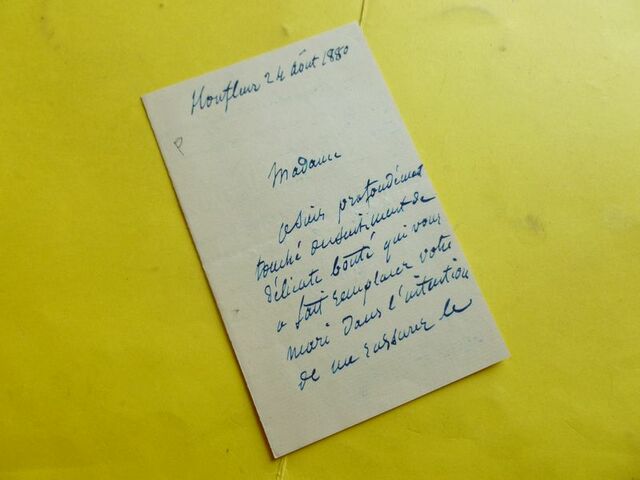 Honfleur 24 août 1880
P
Madame
Je suis profondément
touché du sentiment de
délicate bonté qui vous
a fait remplacer votre
mari dans l'intention
de me rassurer le